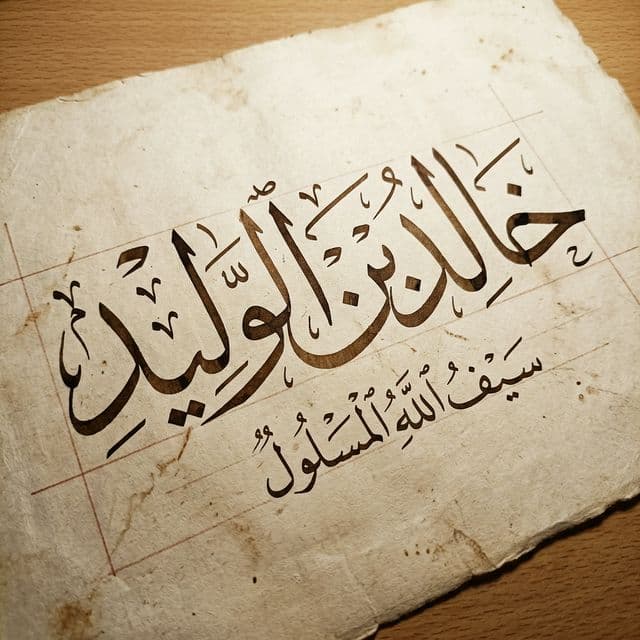 خَالِدُ بْنُ الْوَلِيدِ
سَيْفُ ٱللَّهِ الْمَسْلُولُ